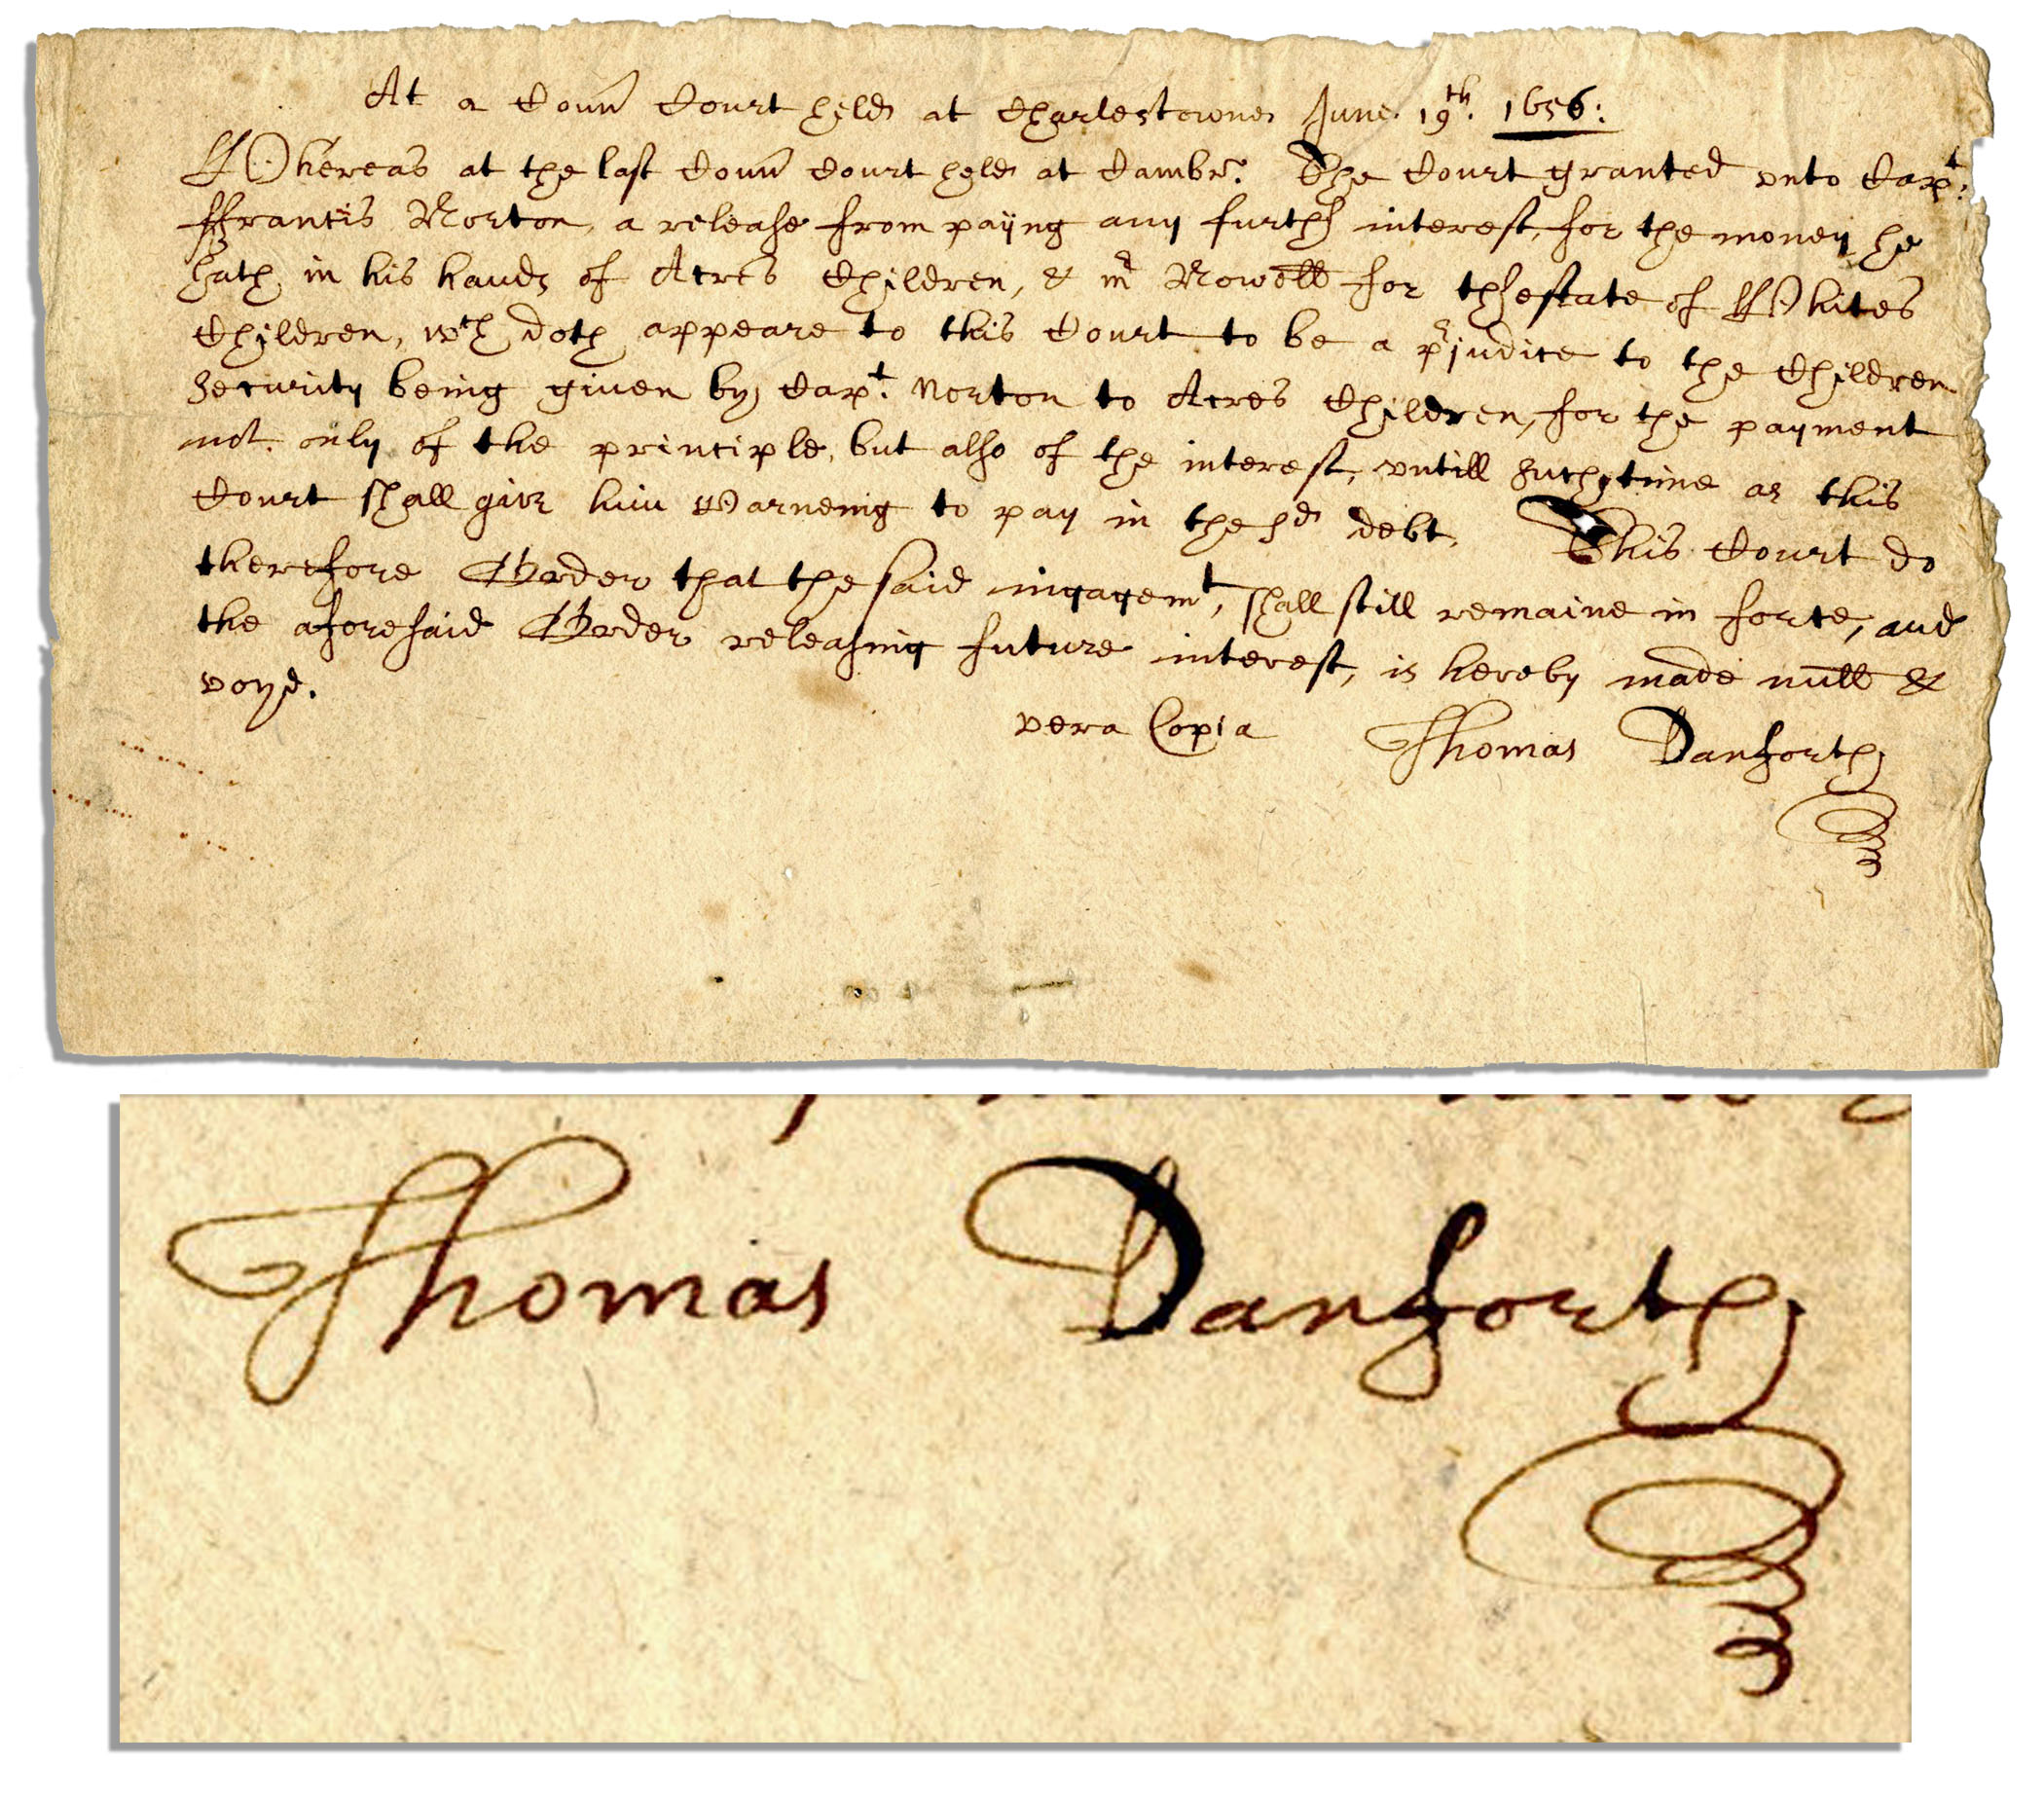 At a Coun Court held at Charlestowne June 19th. 1656:
Whereas at the last Coun Court held at Cambr. The Court granted vnto Capt.
ffrancis Norton, a release from paying any furthr interest, for the money he
hath in his hands of Acres Children, & mr Nowell for thestate of Whites
Children, wch doth appeare to this Court to be a prjudice to the Children
Security being given by Capt. Norton to Acres Children, for the payment
not only of the principle, but also of the interest, vntill such time as this
Court shall give him Warneing to pay in the sd debt. This Court do
therefore Order that the said ingagemt, shall still remaine in force, and
the aforesaid Order releasing future interest, is hereby made null &
voyd.
vera Copia Thomas Danforth
Thomas Danforth